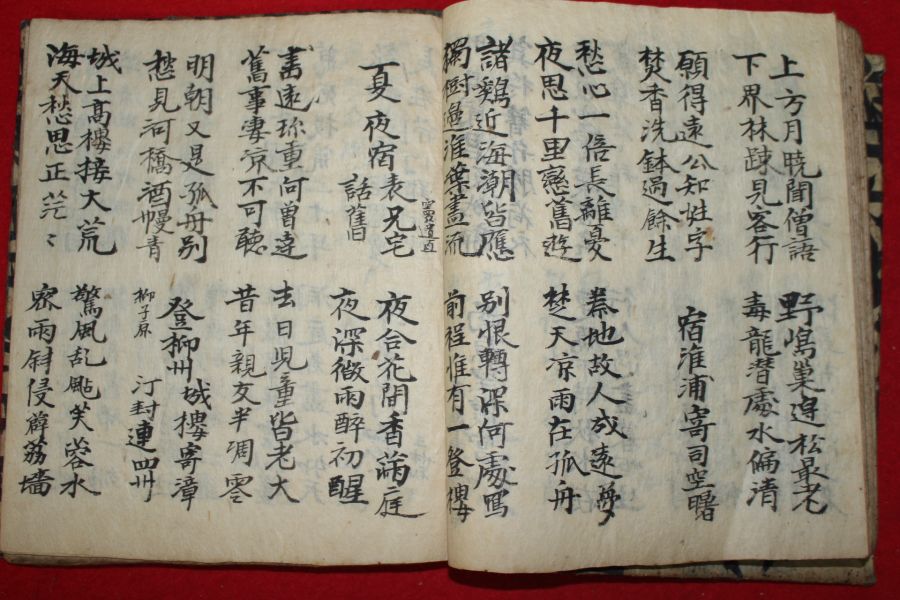 上方月曉聞僧語
下界林踈見客行
野嶋巢邊松最老
毒龍潛處水偏清
願得遠公知姓字
焚香洗鉢過餘生
宿淮浦寄司空曙
愁心一倍長離憂
夜思千里戀舊遊
秦地故人成遠夢
楚天凉雨在孤舟
諸鷄近海潮皆應
獨樹邊淮葉盡流
別恨轉深何處寫
前程惟有一登樓
夏夜宿表兄宅
話舊
夜合花開香滿庭
夜深微雨醉初醒
書遠珍重何曾達
舊事凄凉不可聽
去日兒童皆老大
昔年親友半凋零
明朝又是孤舟別
愁見河橋酒幔青
登柳州城樓寄漳
汀封連四州
柳子厚
城上高樓接大荒
海天愁思正茫〻
驚風乱颭芙蓉水
密雨斜侵薜荔墻